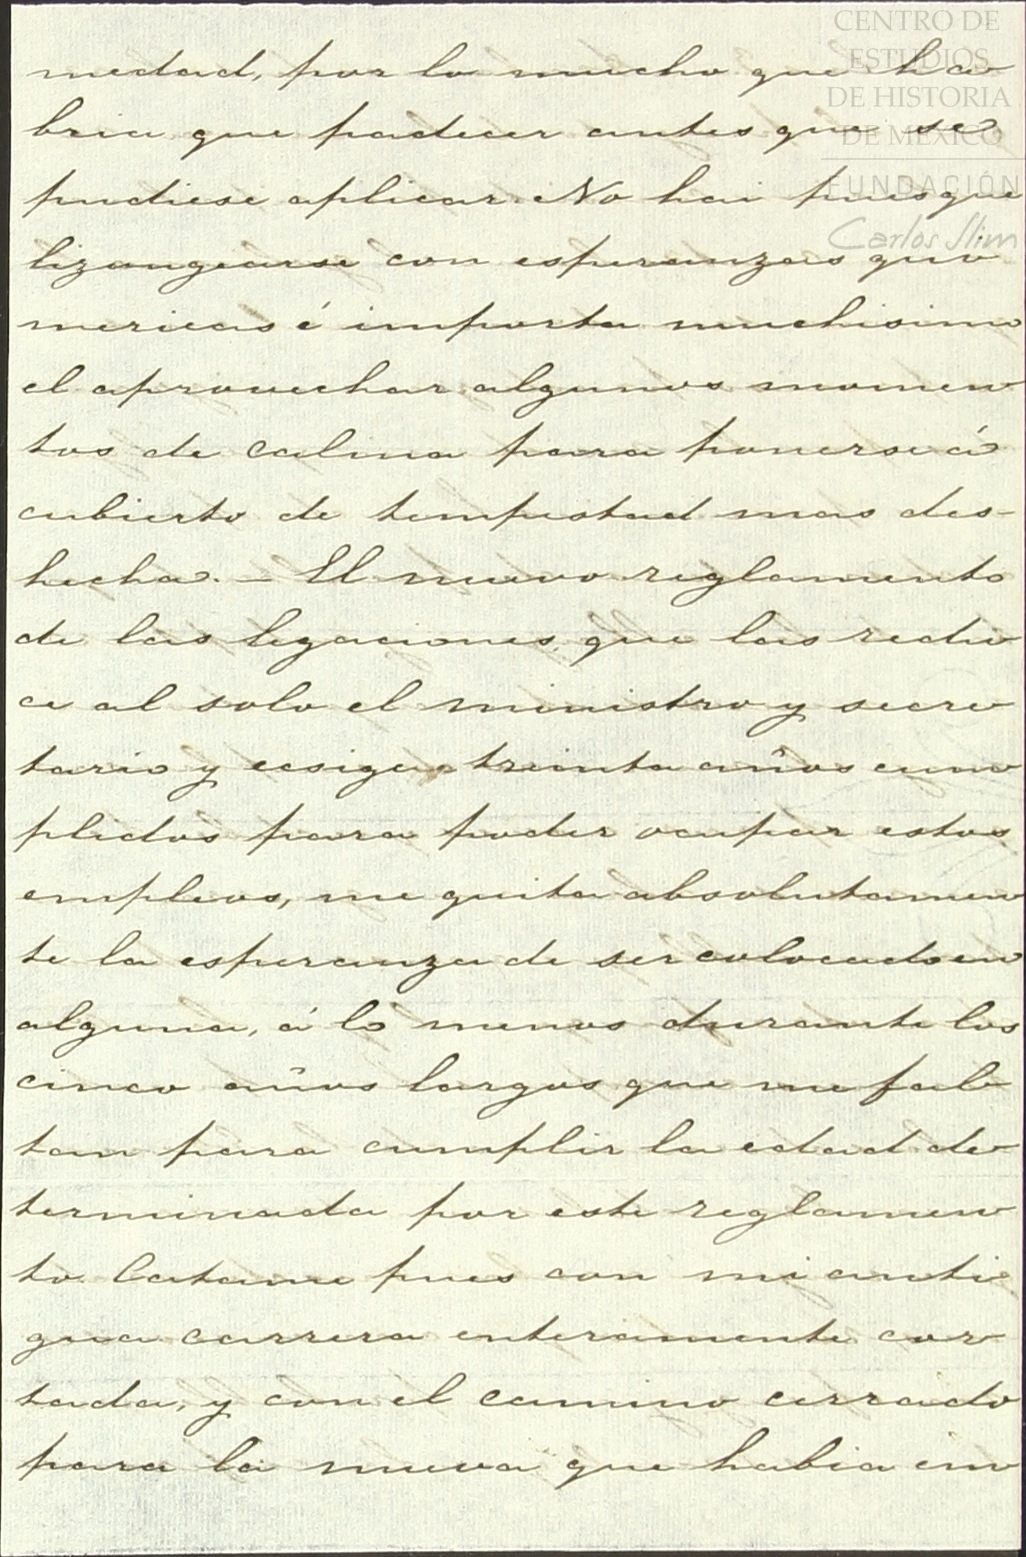 CENTRO DE
ESTUDIOS
DE HISTORIA
DE MEXICO
FUNDACIÓN
Carlos Slim
medad, por lo mucho que ha
bria que padecer antes que se
pudiese aplicar. No hai pues que
lizongearse con esperanzas qui
mericas é importa muchisimo
el aprovechar algunos momen
tos de calma para ponerse á
cubierto de tempestad mas des-
hecha. — El nuevo reglamento
de las legaciones, que las redu
ce al solo el ministro y secre
tario y ecsige treinta años cum
plidos para poder ocupar estos
empleos, me quita absolutamen
te la esperanza de ser colocado en
alguna, á lo menos durante los
cinco años largos que me fal
tan para cumplir la edad de
terminada por este reglamen
to. Catame pues con mi anti
gua carrera enteramente cor
tada, y con el camino cerrado
para la nueva que habia em